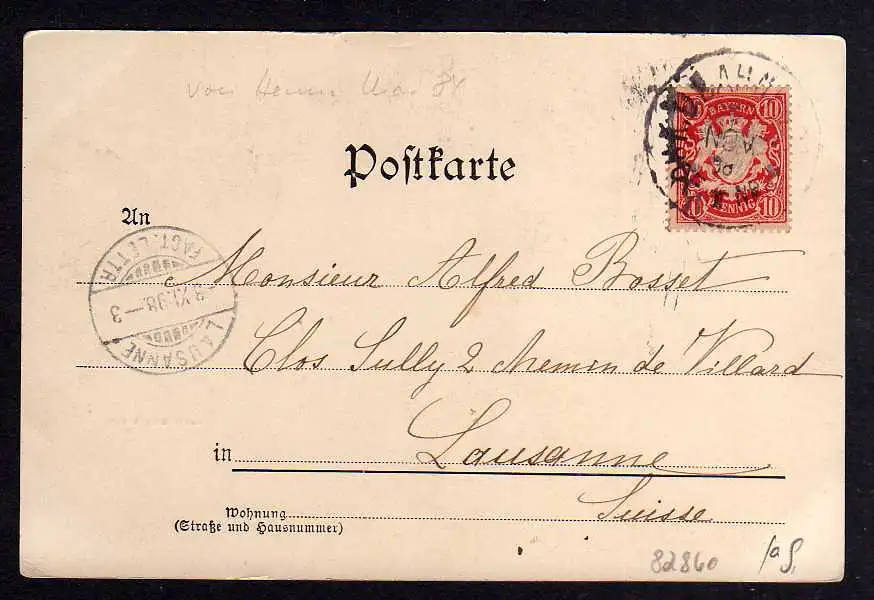 von
Postkarte
An
BAYERN
10 10
10 PFENNIG 10
NOV
98
FACT. LETTR.
8.XI.98.–3
LAUSANNE
Monsieur Alfred Bosset
Clos Sully 2 Chemin de Villard
in Lausanne
Wohnung
(Straße und Hausnummer)
Suisse
82860